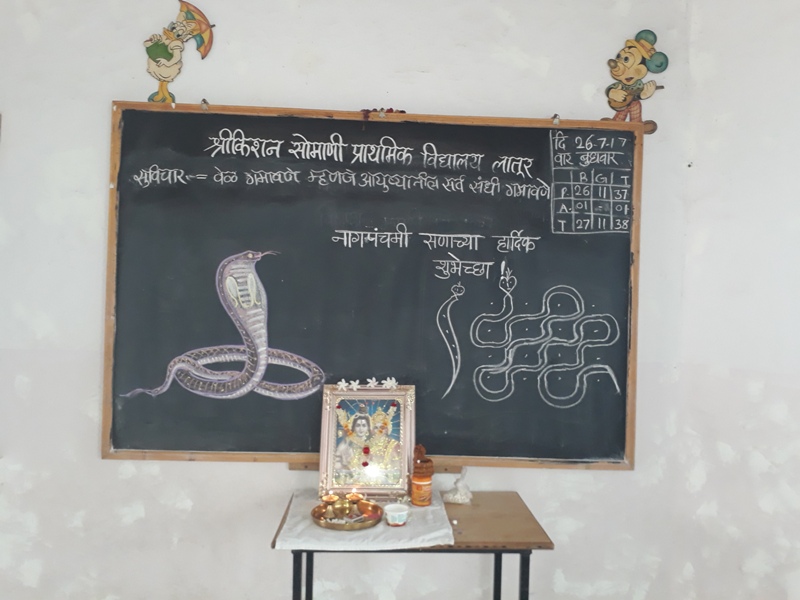 श्रीकिशन सोमाणी प्राथमिक विद्यालय लातूर
सुविचार -= वेळ गमावणे म्हणजे आयुष्यातील सर्व संधी गमावणे
नागपंचमी सणाच्या हार्दिक
शुभेच्छा !
दि 26-7-17
वार बुधवार
B G T
P. 26 11 37
A. 01 -- 01
T 27 11 38